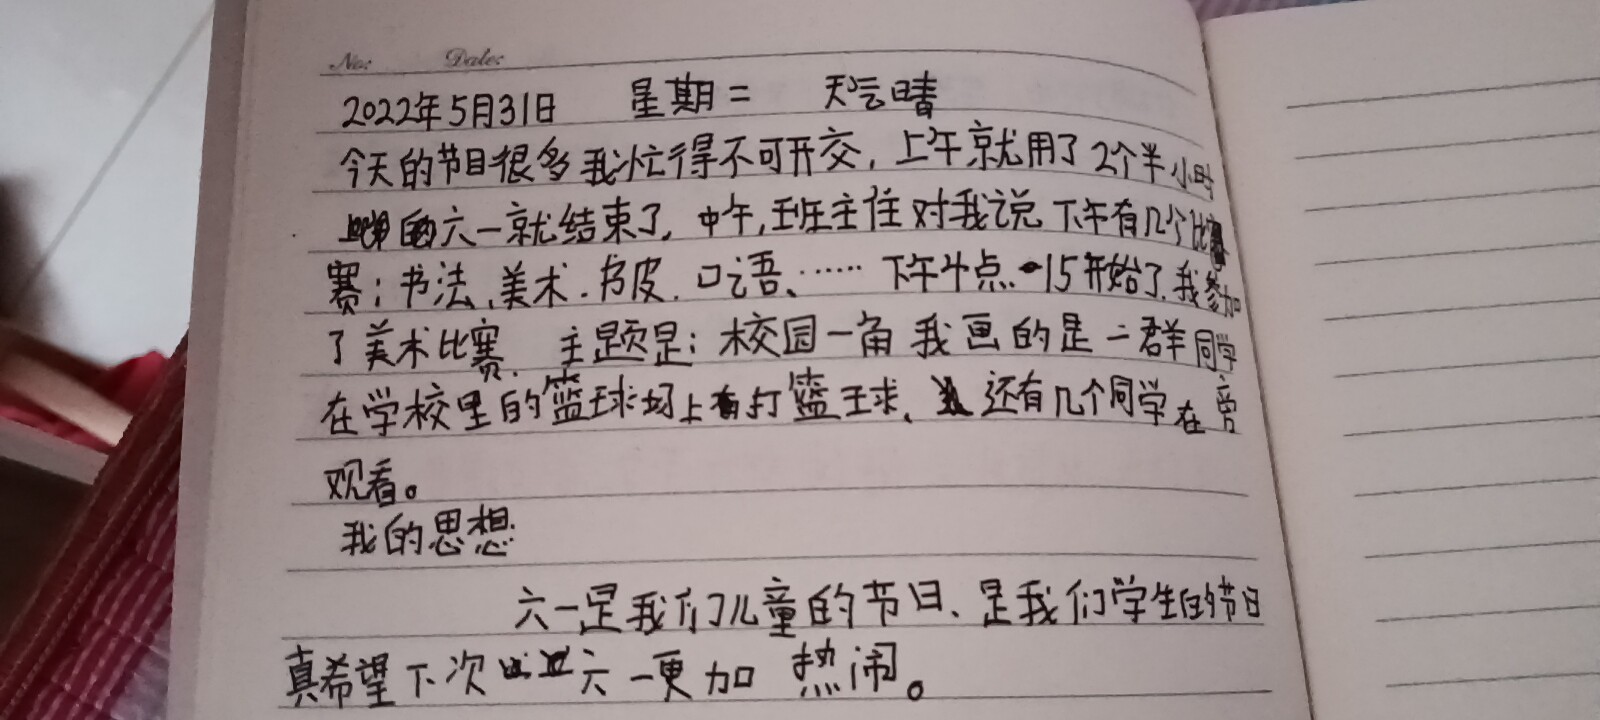 No: Date:
2022年5月31日 星期二 天气晴
今天的节目很多我忙得不可开交，上午就用了2个半小时
的六一就结束了，中午，班主任对我说下午有几个比
赛：书法、美术、书皮、口语、……下午4点 15开始了，我参加
了美术比赛，主题是：校园一角我画的是一群同学
在学校里的篮球场上打篮球、还有几个同学在旁
观看。
我的思想
六一是我们儿童的节日、是我们学生的节日
真希望下次六一更加热闹。